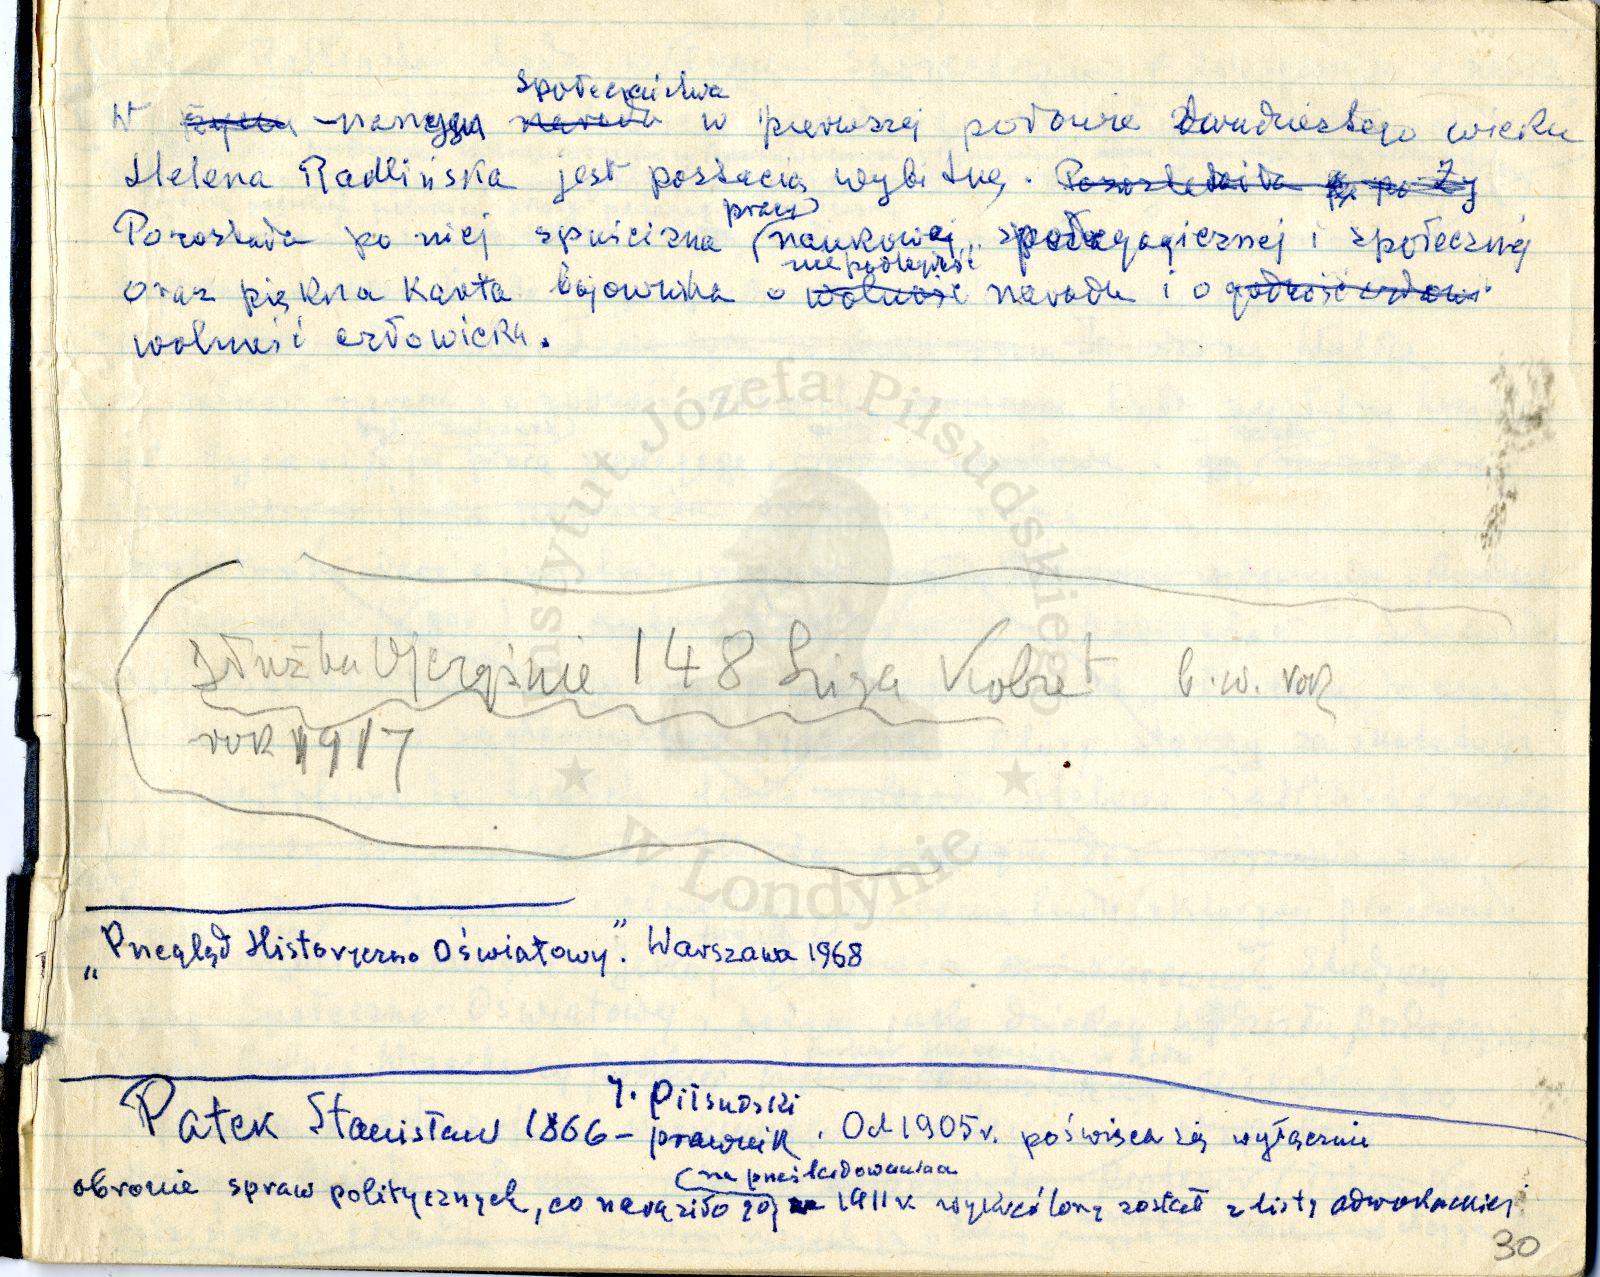 społeczeństwa
W życiu naszego narodu w pierwszej połowie dwudziestego wieku
Helena Radlińska jest postacią wybitną. Pozostawiła po
pracy
Pozostała po niej spuścizna naukowej, pedagogicznej i społecznej
niepodległość
oraz piękna karta bojownika o wolność narodu i o godność
wolność człowieka.
Służba Ojczyźnie 148 Liga Kobiet b.w. rok
rok 1917
„Przegląd Historyczno Oświatowy”. Warszawa 1968
J. Piłsudski
Patek Stanisław 1866 – prawnik. Od 1905 r. poświęca się wyłącznie
(na prześladowania
obronie spraw politycznych, co naraziło go) w 1911 r. wykreślony został z listy adwokackiej
30
Instytut Józefa Piłsudskiego
w Londynie